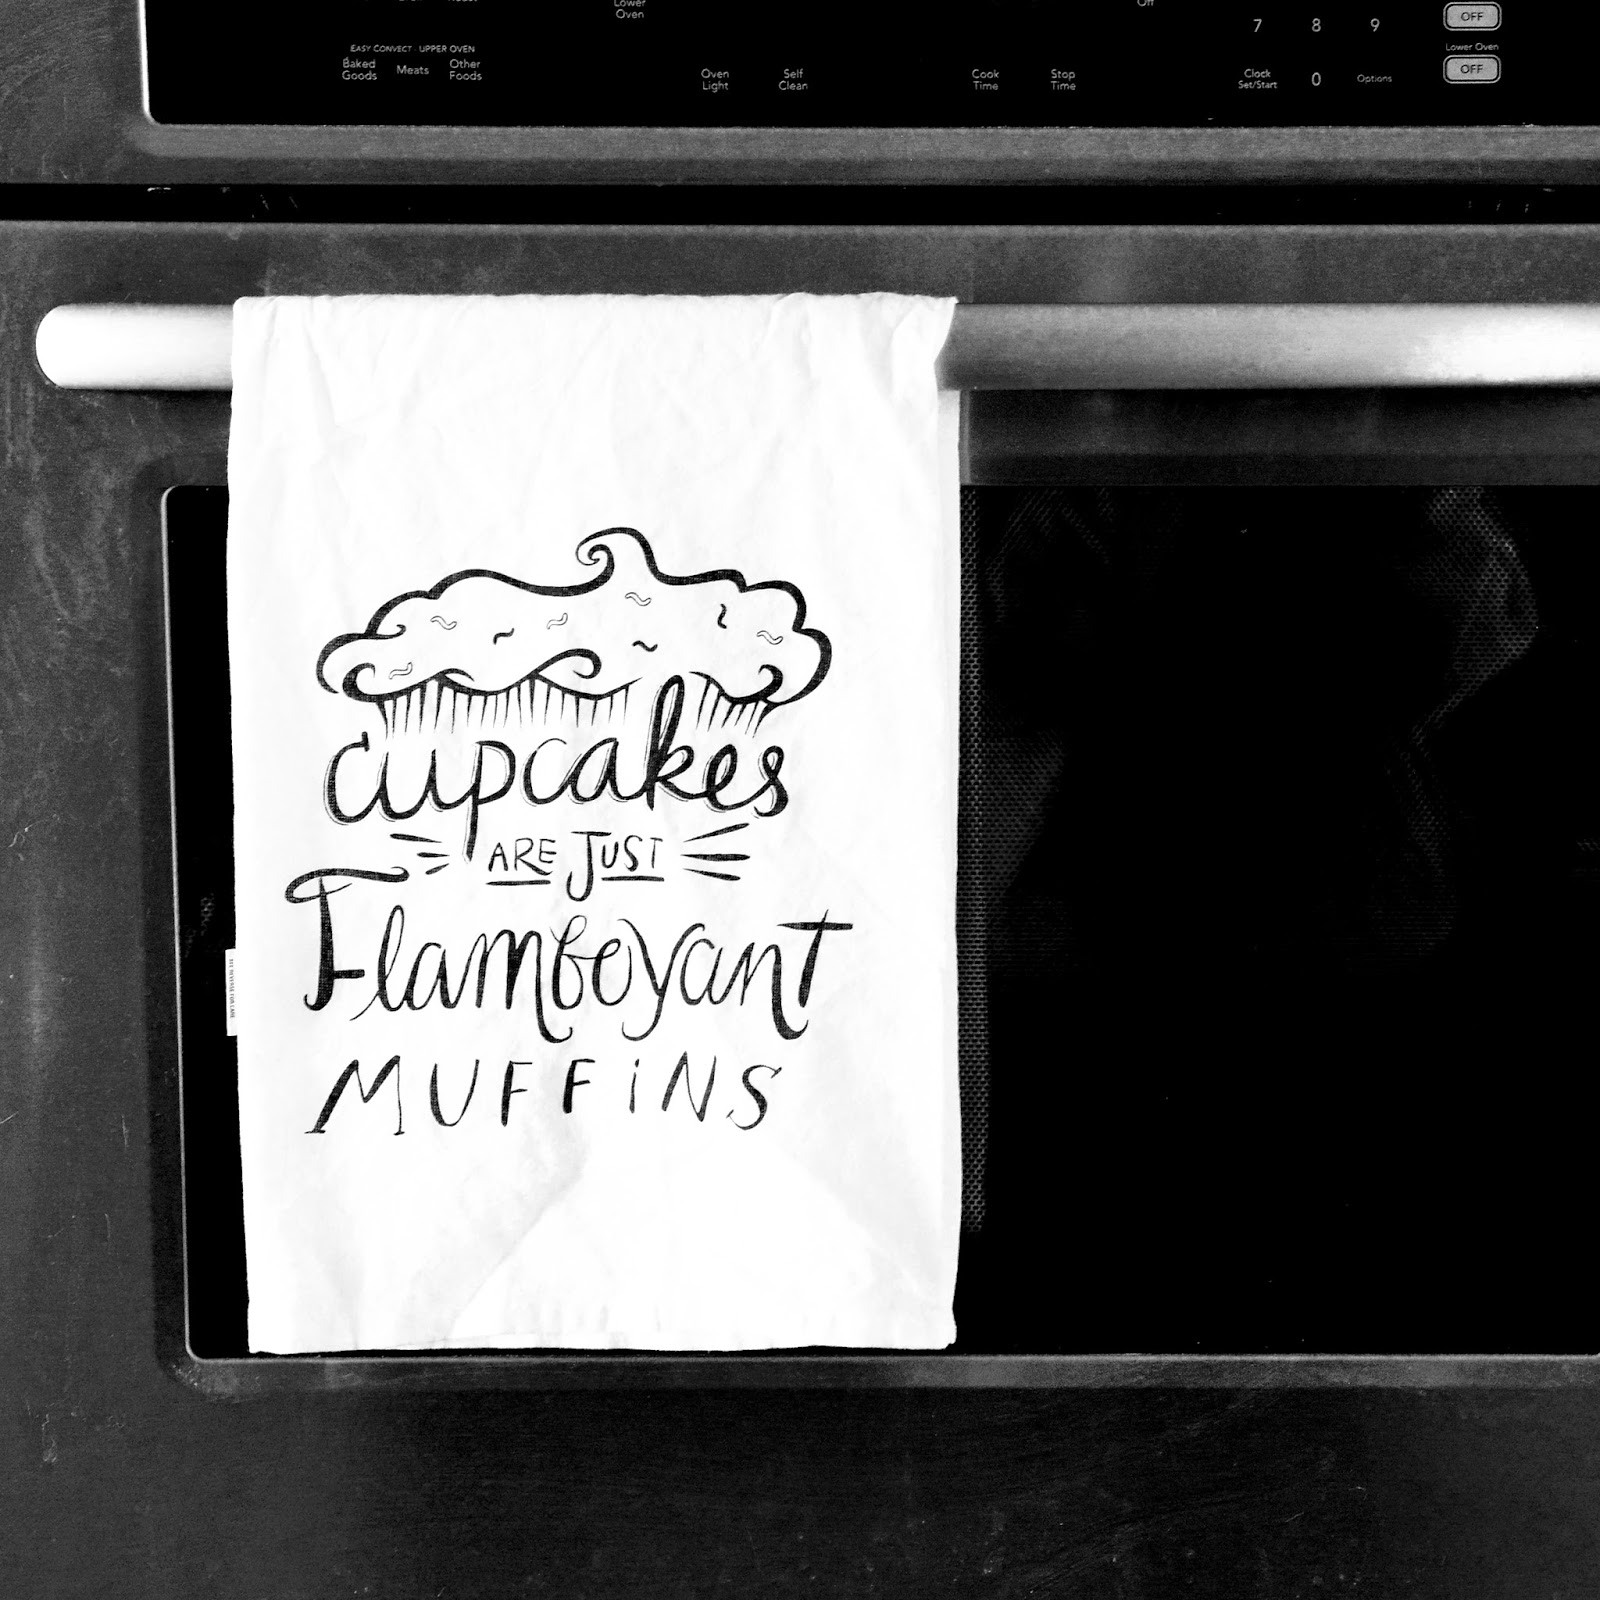 Lower
Oven
Off
7 8 9
OFF
EASY CONVECT · UPPER OVEN
Baked
Goods
Meats
Other
Foods
Oven
Light
Self
Clean
Cook
Time
Stop
Time
Clock
Set/Start
0
Options
Lower Oven
OFF
cupcakes
ARE JUST
Flamboyant
MUFFiNS
SEE REVERSE FOR CARE